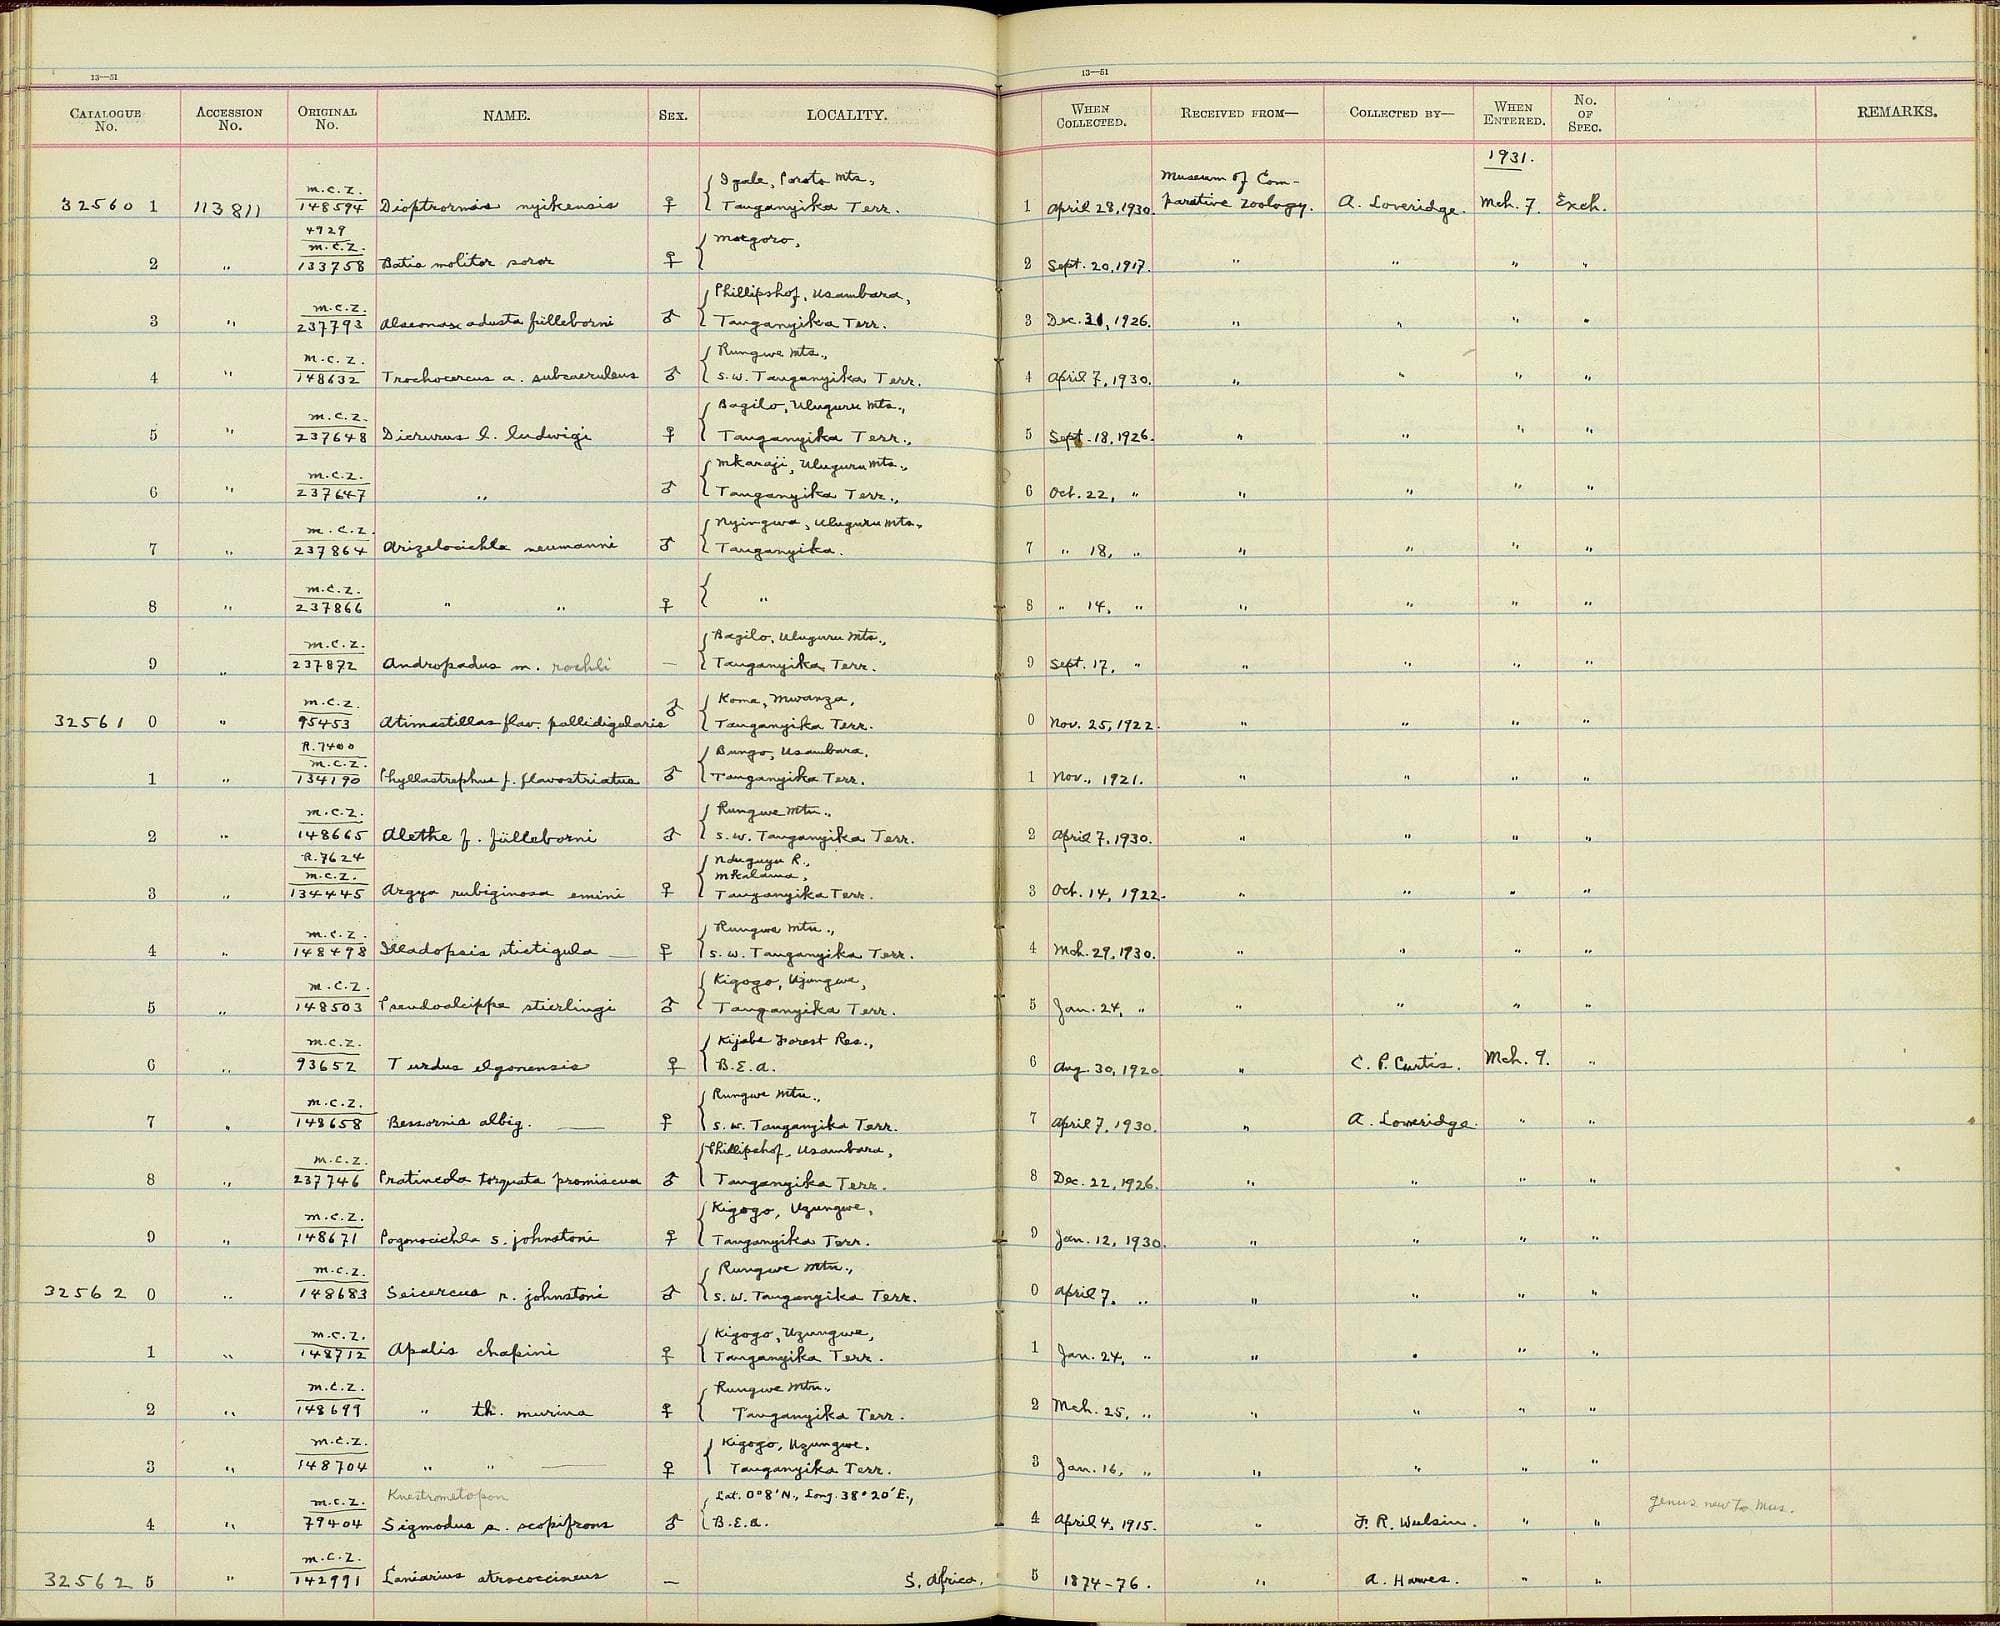 13—51
13—51
CATALOGUE No. ACCESSION No. ORIGINAL No. NAME. SEX. LOCALITY. WHEN COLLECTED. RECEIVED FROM— COLLECTED BY— WHEN ENTERED. No. OF SPEC. REMARKS.
1931.
M.C.Z. Igale, Poroto Mts., Museum of Com-
32560 1 113811 148594 Dioptrornis nyikensis ♀ Tanganyika Terr. 1 April 28, 1930. parative Zoology. A. Loveridge. Mch. 7. Exch.
4929
M.C.Z. Morogoro,
2 " 133758 Batis molitor soror ♀ 2 Sept. 20, 1917. " " " "
M.C.Z. Phillipshof, Usambara,
3 " 237793 Alseonax adusta fülleborni ♂ Tanganyika Terr. 3 Dec. 31, 1926. " " " "
M.C.Z. Rungwe Mts.,
4 " 148632 Trochocercus a. subcaeruleus ♂ S.W. Tanganyika Terr. 4 April 7, 1930. " " " "
M.C.Z. Bagilo, Uluguru Mts.,
5 " 237648 Dicrurus l. ludwigi ♀ Tanganyika Terr., 5 Sept. 18, 1926. " " " "
M.C.Z. Mkaraji, Uluguru Mts.,
6 " 237647 " ♂ Tanganyika Terr., 6 Oct. 22, " " " " "
M.C.Z. Nyingwa, Uluguru Mts.,
7 " 237864 Arizelocichla neumanni ♂ Tanganyika. 7 " 18, " " " " "
M.C.Z.
8 " 237866 " " ♀ " 8 " 14, " " " " "
M.C.Z. Bagilo, Uluguru Mts.,
9 " 237872 Andropadus m. roehli — Tanganyika Terr. 9 Sept. 17, " " " " "
M.C.Z. Koma, Mwanza,
32561 0 " 95453 Atimastillas flav. pallidigularis ♂ Tanganyika Terr. 0 Nov. 25, 1922. " " " "
R.7400
M.C.Z. Bungo, Usambara.
1 " 134190 Phyllastrephus f. flavostriatus ♂ Tanganyika Terr. 1 Nov., 1921. " " " "
M.C.Z. Rungwe Mtn.,
2 " 148665 Alethe f. fülleborni ♂ S.W. Tanganyika Terr. 2 April 7, 1930. " " " "
R.7624 Nduguyu R.,
M.C.Z. Mkalama,
3 " 134445 Argya rubiginosa emini ♀ Tanganyika Terr. 3 Oct. 14, 1922. " " " "
M.C.Z. Rungwe Mtn.,
4 " 148498 Illadopsis stictigula — ♀ S.W. Tanganyika Terr. 4 Mch. 29, 1930. " " " "
M.C.Z. Kigogo, Ujungwe,
5 " 148503 Pseudoalcippe stierlingi ♂ Tanganyika Terr. 5 Jan. 24, " " " " "
M.C.Z. Kijabe Forest Res.,
6 " 93652 Turdus elgonensis ♀ B.E.A. 6 Aug. 30, 1920 " C. P. Curtis. Mch. 9. "
M.C.Z. Rungwe Mtn.,
7 " 148658 Bessornis albig. — ♀ S.W. Tanganyika Terr. 7 April 7, 1930. " A. Loveridge. " "
M.C.Z. Phillipshof, Usambara,
8 " 237746 Pratincola torquata promiscua ♂ Tanganyika Terr. 8 Dec. 22, 1926. " " " "
M.C.Z. Kigogo, Uzungwe,
9 " 148671 Pogonocichla s. johnstoni ♀ Tanganyika Terr. 9 Jan. 12, 1930. " " " "
M.C.Z. Rungwe Mtn.,
32562 0 " 148683 Seicercus r. johnstoni ♂ S.W. Tanganyika Terr. 0 April 7, " " " " "
M.C.Z. Kigogo, Uzungwe,
1 " 148712 Apalis chapini ♀ Tanganyika Terr. 1 Jan. 24, " " " " "
M.C.Z. Rungwe Mtn.,
2 " 148699 " th. murina ♀ Tanganyika Terr. 2 Mch. 25, " " " " "
M.C.Z. Kigogo, Uzungwe,
3 " 148704 " " — ♀ Tanganyika Terr. 3 Jan. 16, " " " " "
M.C.Z. Knestrometopon Lat. 0°8'N., Long. 38°20'E., genus new to Mus.
4 " 79404 Sigmodus s. scopifrons ♂ B.E.A. 4 April 4, 1915. " F. R. Wulsin. " "
M.C.Z.
32562 5 " 142991 Laniarius atrococcineus — S. Africa. 5 1874-76. " A. Hawes. " "